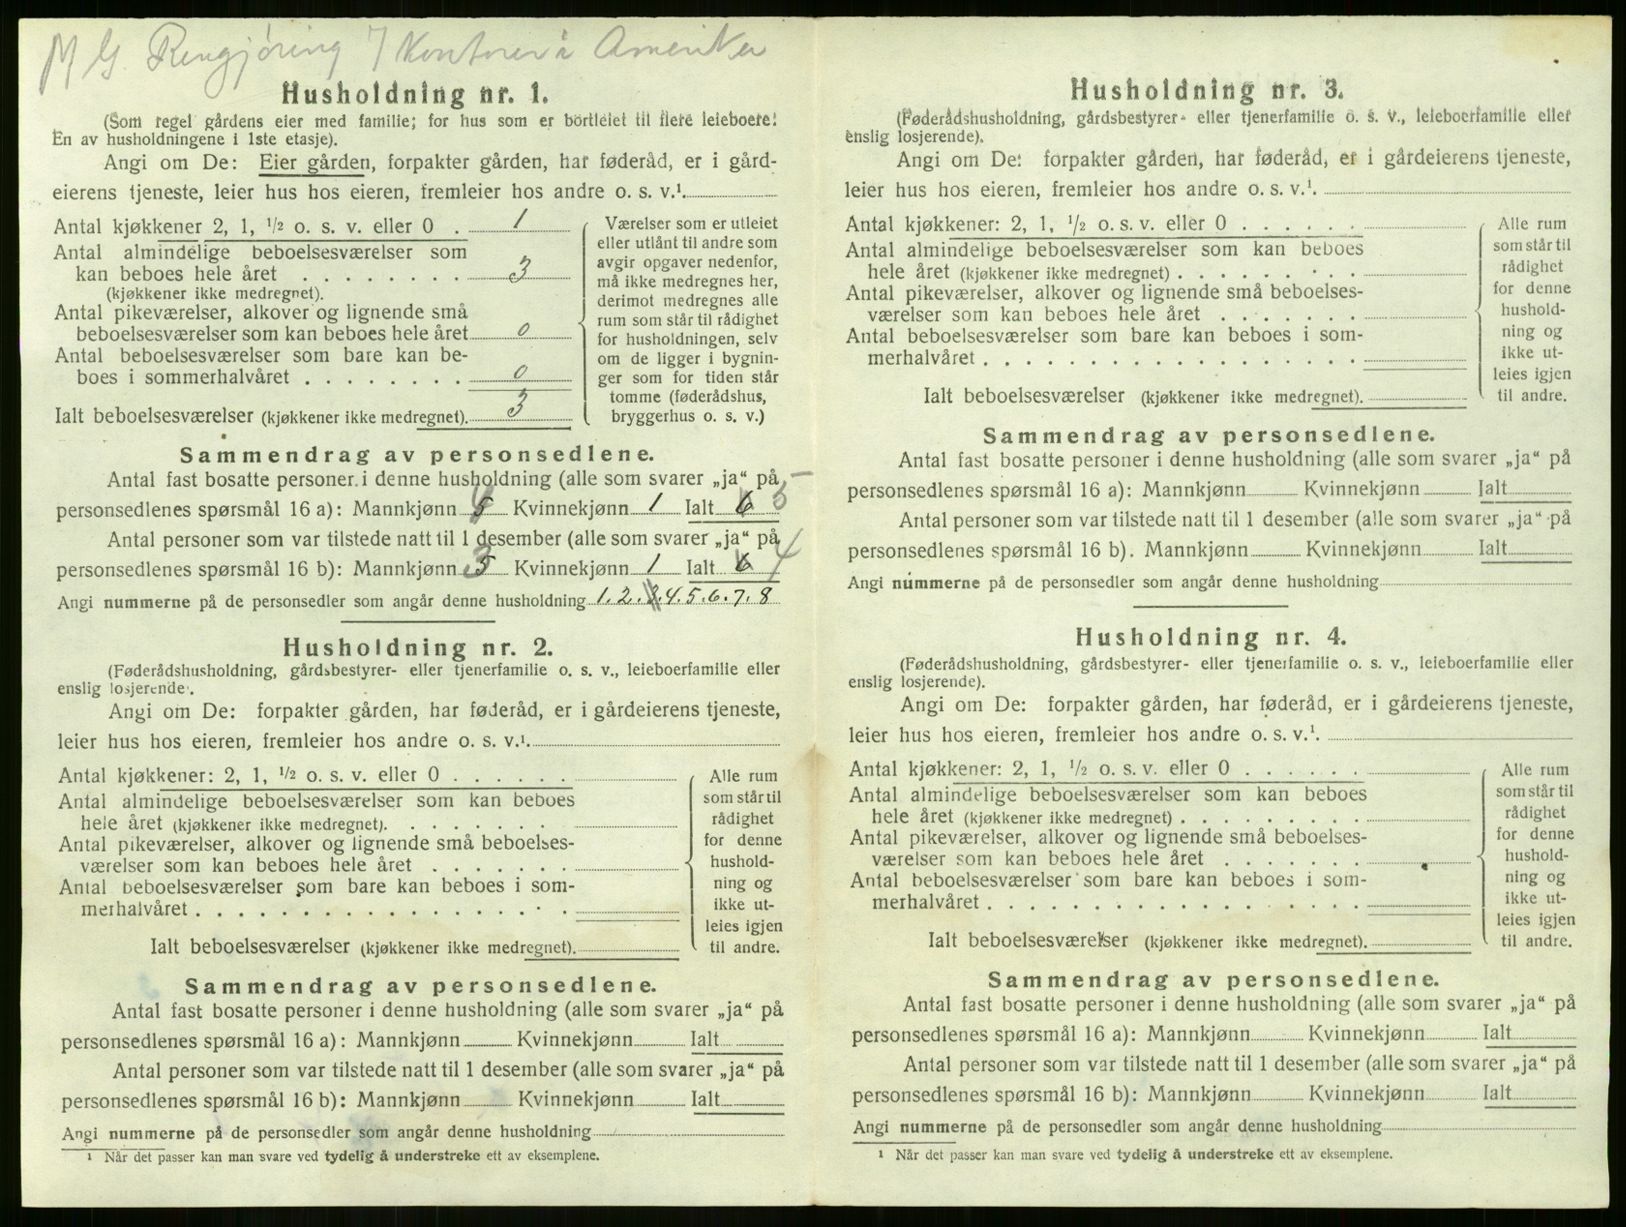 M G. Rengjøring 7 Kontorer i Amerika
Husholdning nr. 1.
(Som regel gårdens eier med familie; for hus som er bortleiet til flere leieboere:
En av husholdningene i 1ste etasje).
Angi om De: Eier gården, forpakter gården, har føderåd, er i gård-
eierens tjeneste, leier hus hos eieren, fremleier hos andre o. s. v.¹.
Antal kjøkkener 2, 1, ½ o. s. v. eller 0 . 1
Antal almindelige beboelsesværelser som
kan beboes hele året . . . . . . . 3
(kjøkkener ikke medregnet).
Antal pikeværelser, alkover og lignende små
beboelsesværelser som kan beboes hele året 0
Antal beboelsesværelser som bare kan be-
boes i sommerhalvåret . . . . . . . . 0
Ialt beboelsesværelser (kjøkkener ikke medregnet). 3
Værelser som er utleiet
eller utlånt til andre som
avgir opgaver nedenfor,
må ikke medregnes her,
derimot medregnes alle
rum som står til rådighet
for husholdningen, selv
om de ligger i bygnin-
ger som for tiden står
tomme (føderådshus,
bryggerhus o. s. v.)
Sammendrag av personsedlene.
Antal fast bosatte personer i denne husholdning (alle som svarer „ja“ på
personsedlenes spørsmål 16 a): Mannkjønn 5 4 Kvinnekjønn 1 Ialt 6 5
Antal personer som var tilstede natt til 1 desember (alle som svarer „ja“ på
personsedlenes spørsmål 16 b): Mannkjønn 5 3 Kvinnekjønn 1 Ialt 6 4
Angi nummerne på de personsedler som angår denne husholdning 1.2.3.4.5.6.7.8
Husholdning nr. 2.
(Føderådshusholdning, gårdsbestyrer- eller tjenerfamilie o. s. v., leieboerfamilie eller
enslig losjerende).
Angi om De: forpakter gården, har føderåd, er i gårdeierens tjeneste,
leier hus hos eieren, fremleier hos andre o. s. v.¹.
Antal kjøkkener: 2, 1, ½ o. s. v. eller 0 . . . . . .
Antal almindelige beboelsesværelser som kan beboes
hele året (kjøkkener ikke medregnet). . . . . . . .
Antal pikeværelser, alkover og lignende små beboelses-
værelser som kan beboes hele året . . . . . . .
Antal beboelsesværelser som bare kan beboes i som-
merhalvåret . . . . . . . . . . . . . . . . .
Ialt beboelsesværelser (kjøkkener ikke medregnet).
Alle rum
som står til
rådighet
for denne
hushold-
ning og
ikke ut-
leies igjen
til andre.
Sammendrag av personsedlene.
Antal fast bosatte personer i denne husholdning (alle som svarer „ja“ på
personsedlenes spørsmål 16 a): Mannkjønn Kvinnekjønn Ialt
Antal personer som var tilstede natt til 1 desember (alle som svarer „ja“ på
personsedlenes spørsmål 16 b): Mannkjønn Kvinnekjønn Ialt
Angi nummerne på de personsedler som angår denne husholdning
¹ Når det passer kan man svare ved tydelig å understreke ett av eksemplene.
Husholdning nr. 3.
(Føderådshusholdning, gårdsbestyrer- eller tjenerfamilie o. s. v., leieboerfamilie eller
enslig losjerende).
Angi om De: forpakter gården, har føderåd, er i gårdeierens tjeneste,
leier hus hos eieren, fremleier hos andre o. s. v.¹.
Antal kjøkkener: 2, 1, ½ o. s. v. eller 0 . . . . . .
Antal almindelige beboelsesværelser som kan beboes
hele året (kjøkkener ikke medregnet) . . . . . . . . .
Antal pikeværelser, alkover og lignende små beboelses-
værelser som kan beboes hele året . . . . . . .
Antal beboelsesværelser som bare kan beboes i som-
merhalvåret . . . . . . . . . . . . . . . . .
Ialt beboelsesværelser (kjøkkener ikke medregnet).
Alle rum
som står til
rådighet
for denne
hushold-
ning og
ikke ut-
leies igjen
til andre.
Sammendrag av personsedlene.
Antal fast bosatte personer i denne husholdning (alle som svarer „ja“ på
personsedlenes spørsmål 16 a): Mannkjønn Kvinnekjønn Ialt
Antal personer som var tilstede natt til 1 desember (alle som svarer „ja“ på
personsedlenes spørsmål 16 b). Mannkjønn Kvinnekjønn Ialt
Angi nummerne på de personsedler som angår denne husholdning
Husholdning nr. 4.
(Føderådshusholdning, gårdsbestyrer- eller tjenerfamilie o. s. v., leieboerfamilie eller
enslig losjerende).
Angi om De: forpakter gården, har føderåd, er i gårdeierens tjeneste,
leier hus hos eieren, fremleier hos andre o. s. v.¹.
Antal kjøkkener: 2, 1, ½ o. s. v. eller 0 . . . . . .
Antal almindelige beboelsesværelser som kan beboes
hele året (kjøkkener ikke medregnet) . . . . . . . . .
Antal pikeværelser, alkover og lignende små beboelses-
værelser som kan beboes hele året . . . . . . .
Antal beboelsesværelser som bare kan beboes i som-
merhalvåret . . . . . . . . . . . . . . . . .
Ialt beboelsesværelser (kjøkkener ikke medregnet).
Alle rum
som står til
rådighet
for denne
hushold-
ning og
ikke ut-
leies igjen
til andre.
Sammendrag av personsedlene.
Antal fast bosatte personer i denne husholdning (alle som svarer „ja“ på
personsedlenes spørsmål 16 a): Mannkjønn Kvinnekjønn Ialt
Antal personer som var tilstede natt til 1 desember (alle som svarer „ja“ på
personsedlenes spørsmål 16 b): Mannkjønn Kvinnekjønn Ialt
Angi nummerne på de personsedler som angår denne husholdning
¹ Når det passer kan man svare ved tydelig å understreke ett av eksemplene.